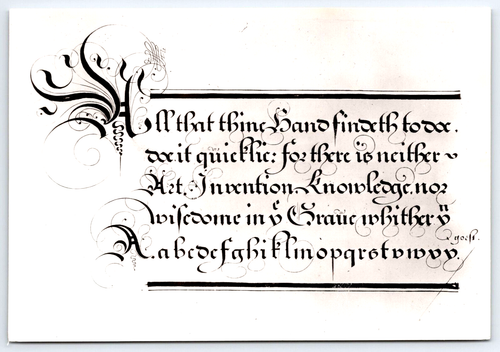 All that thine Hand findeth to doe.
doe it quicklie: for there is neither
Art, Invention, Knowledge, nor
wisedome in yͤ Graue, whither yͧ
goest.
A.abcdefghiklmopqrstvwxy.